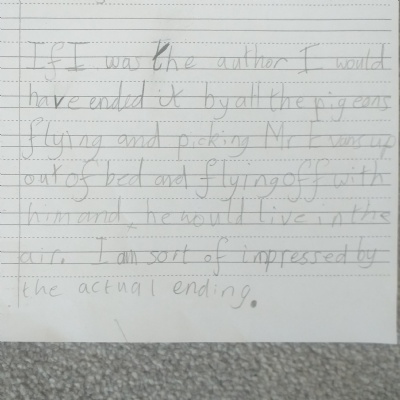 If I was the author I would
have ended it by all the pigeons
flying and picking Mr Evans up
out of bed and flying off with
him and he would live in the
air. I am sort of impressed by
the actual ending.